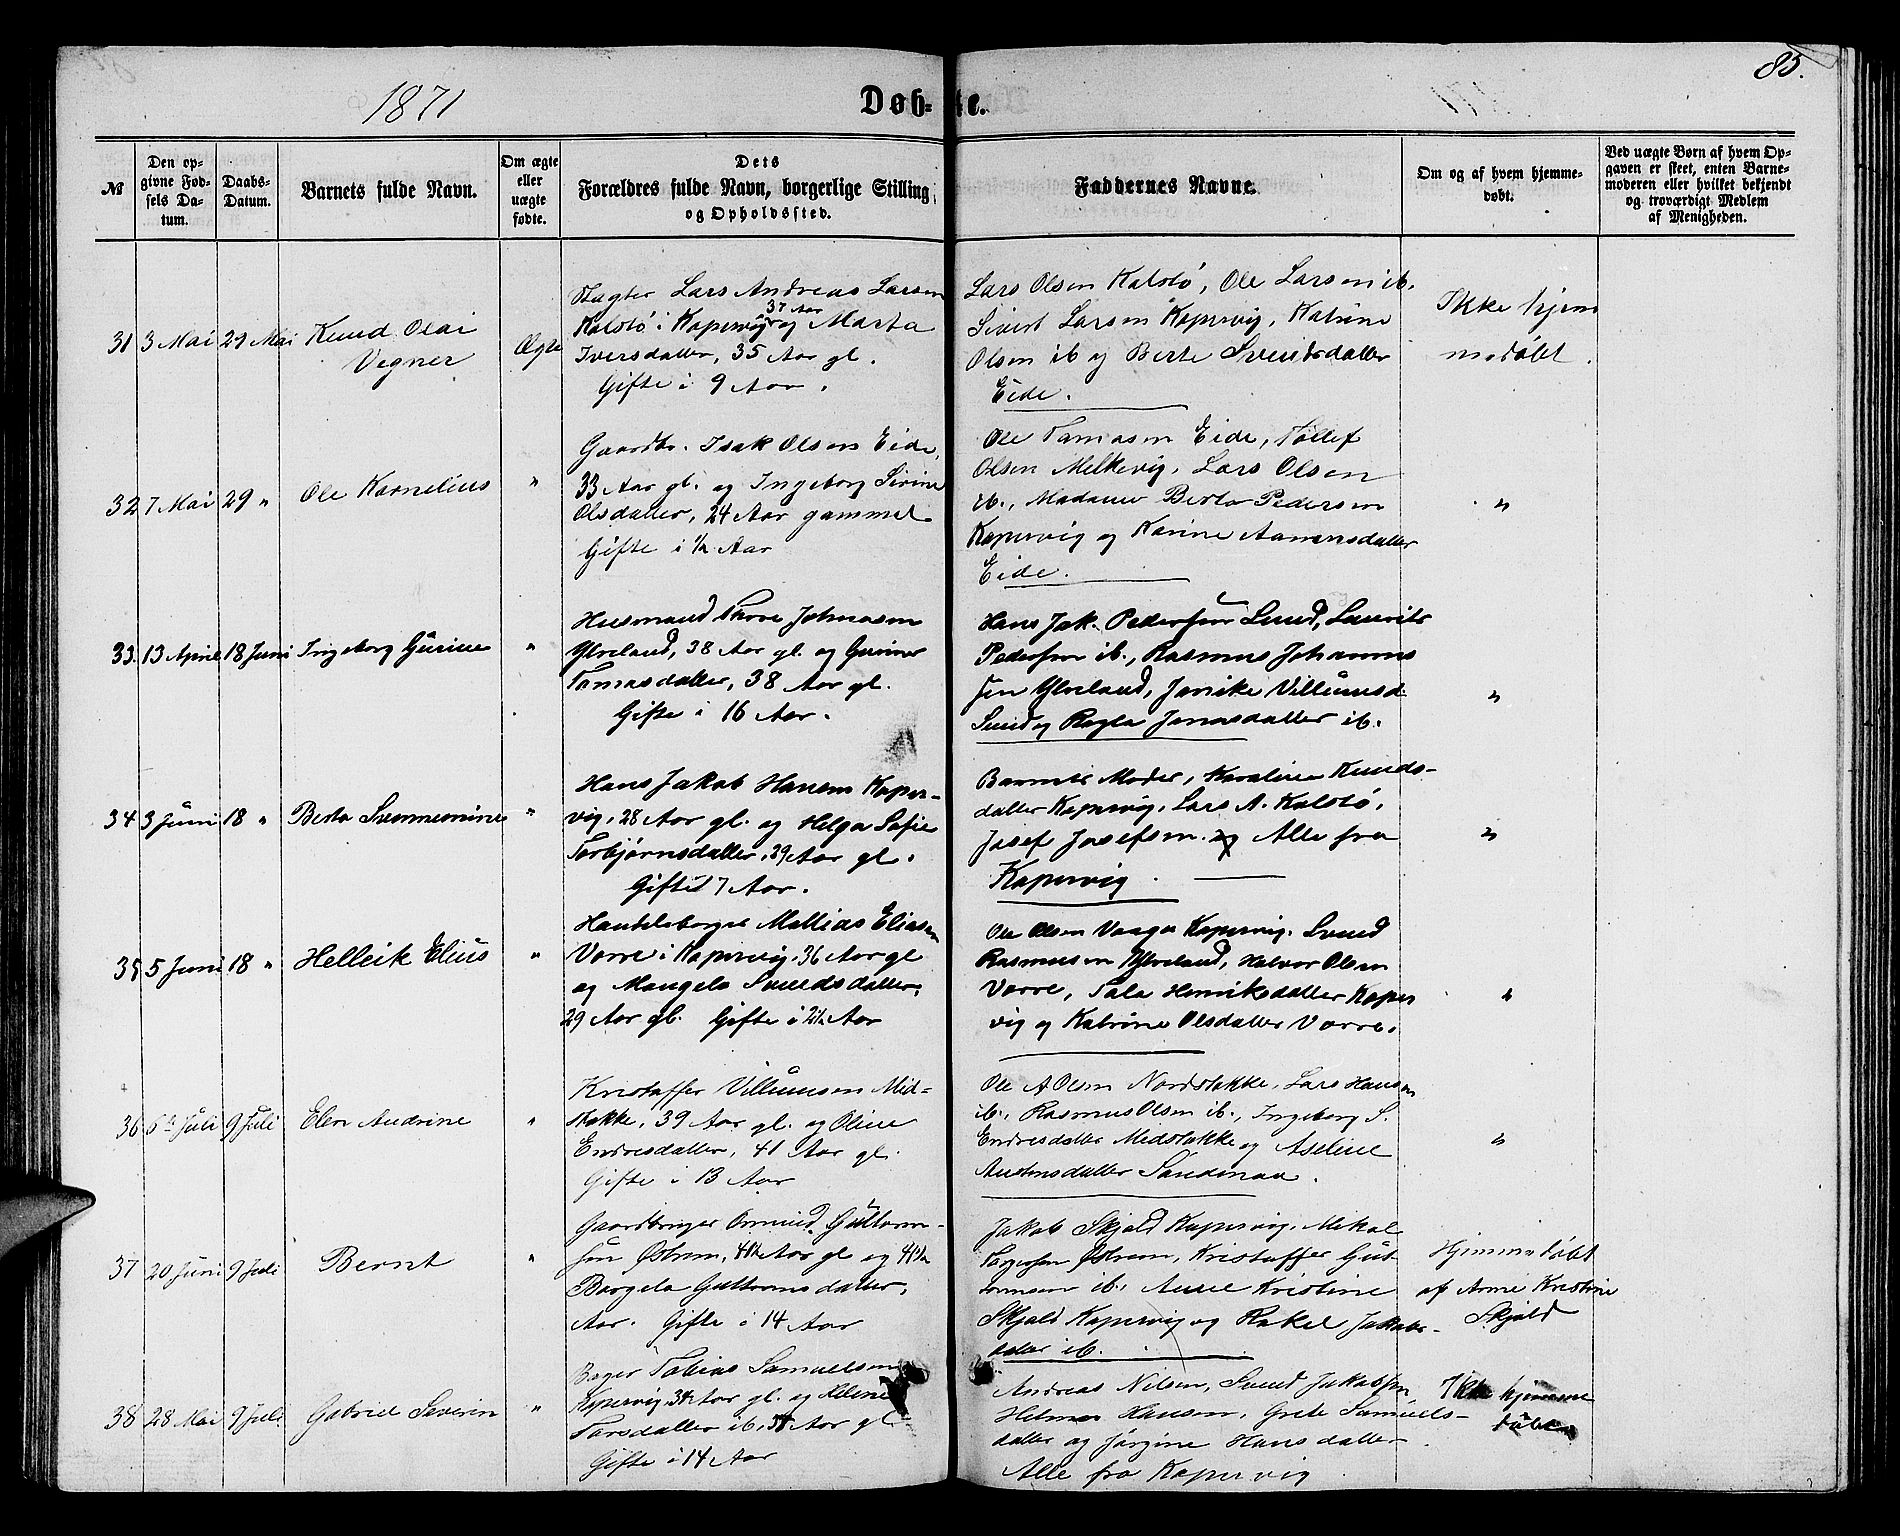 85.
1871
Døb- te.
№
Den op-
givne Fød-
sels Da-
tum.
Daabs-
Datum.
Barnets fulde Navn.
Om ægte
eller
uægte
fødte.
Dets
Forældres fulde Navn, borgerlige Stilling
og Opholdssted.
Faddernes Navne.
Om og af hvem hjemme-
døbt.
Ved uægte Børn af hvem Op-
gaven er skeet, enten Barne-
moderen eller hvilket bekjendt
og troværdigt Medlem
af Menigheden.
31 3 Mai 29 Mai Knud Olai
Vegner
Ægte
Slagter Lars Andreas Larsen
37 Aar
Kalstø i Kopervig og Marta
Iversdatter, 35 Aar gl.
Gifte i 9 Aar.
Lars Olsen Kalstø, Ole Larsen ib.
Sivert Larsen Kopervig, Katrine
Olsen ib og Berte Svendsdatter
Eide.
Ikke hjem
medøbt.
32 7 Mai 29 " Ole Kornelius "
Gaardbr. Isak Olsen Eide,
33 Aar gl. og Ingeborg Sirine
Olsdatter, 24 Aar gammel
Gifte i ½ Aar
Ole Tamasen Eide, Tøllef
Olsen Melkevig, Lars Olsen
ib., Madame Berta Pedersen
Kopervig og Karine Aamensdatter
Eide.
"
33. 13 April 18 Juni Ingeborg Gurine "
Husmand Thore Johnasen
Yhreland, 38 Aar gl. og Gurine
Tamasdatter, 38 Aar gl.
Gifte i 16 Aar.
Hans Jak. Pederssen Lund, Laurits
Pederssen ib., Rasmus Johannes
sen Yhreland, Janike Villumsd.
Lund og Ragla Jonasdatter ib.
"
34 3 Juni 18 " Berta Svennesmine "
Hans Jakob Hansen Koper-
vig, 28 Aar gl. og Helga Sofie
Torbjørnsdatter, 29 Aar gl.
Gifte i 7 Aar.
Barnets Moder, Karoline Knuds-
datter Kopervig, Lars A. Kalstø,
Josef Josefsen. og Alle fra
Kopervig
"
35 5 Juni 18 " Helleik Elius "
Handelsborger Mattias Eliasen
Vorre i Kopervig, 36 Aar gl
og Mangela Svendsdatter,
29 Aar gl. Gifte i 2½ Aar
Ole Olsen Vaage Kopervig. Svend
Rasmusen Yhreland, Halvor Olsen
Vorre, Tala Henriksdatter Koper
vig og Katrine Olsdatter Vorre.
"
36 6te Juli 9 Juli Elen Andrine "
Kristaffer Villumsen Mid-
stokke, 39 Aar gl. og Oline
Endresdatter, 41 Aar gl.
Gifte i 13 Aar
Ole A Olsen Nordstokke, Lars Hansen
ib., Rasmus Olsen ib., Ingeborg S.
Endresdatter Midstokke og Aseline
Austensdatter Sandenaa.
"
37 20 Juni 9 Juli Bernt "
Gaardbruger Omund Guttorm-
sen Østrem, 41½ Aar gl og 41½
Borgela Guttormsdatter,
Aar. Gifte i 14 Aar
Jakob Skjold Kopervig, Mikal
Torgersen Østrem, Kristoffer Gut
tormsen ib. Anne Kristine
Skjold Kopervig og Rakel Jakobs-
datter ib.
Hjemmedøbt
af Anne Kristine
Skjold
38 28 Mai 9 Juli Gabriel Severin "
Bager Tobias Samuelsen
Kopervig, 34 Aar gl. og Helene
Larsdatter ib. 38 Aar gl
Gifte i 14 Aar
Andreas Nilsen, Svend Jakobsen
Helmer Hansen, Grete Samuels-
datter og Jørgine Hansdatter
Alle fra Kopervig
Ikke hjemme
døbt